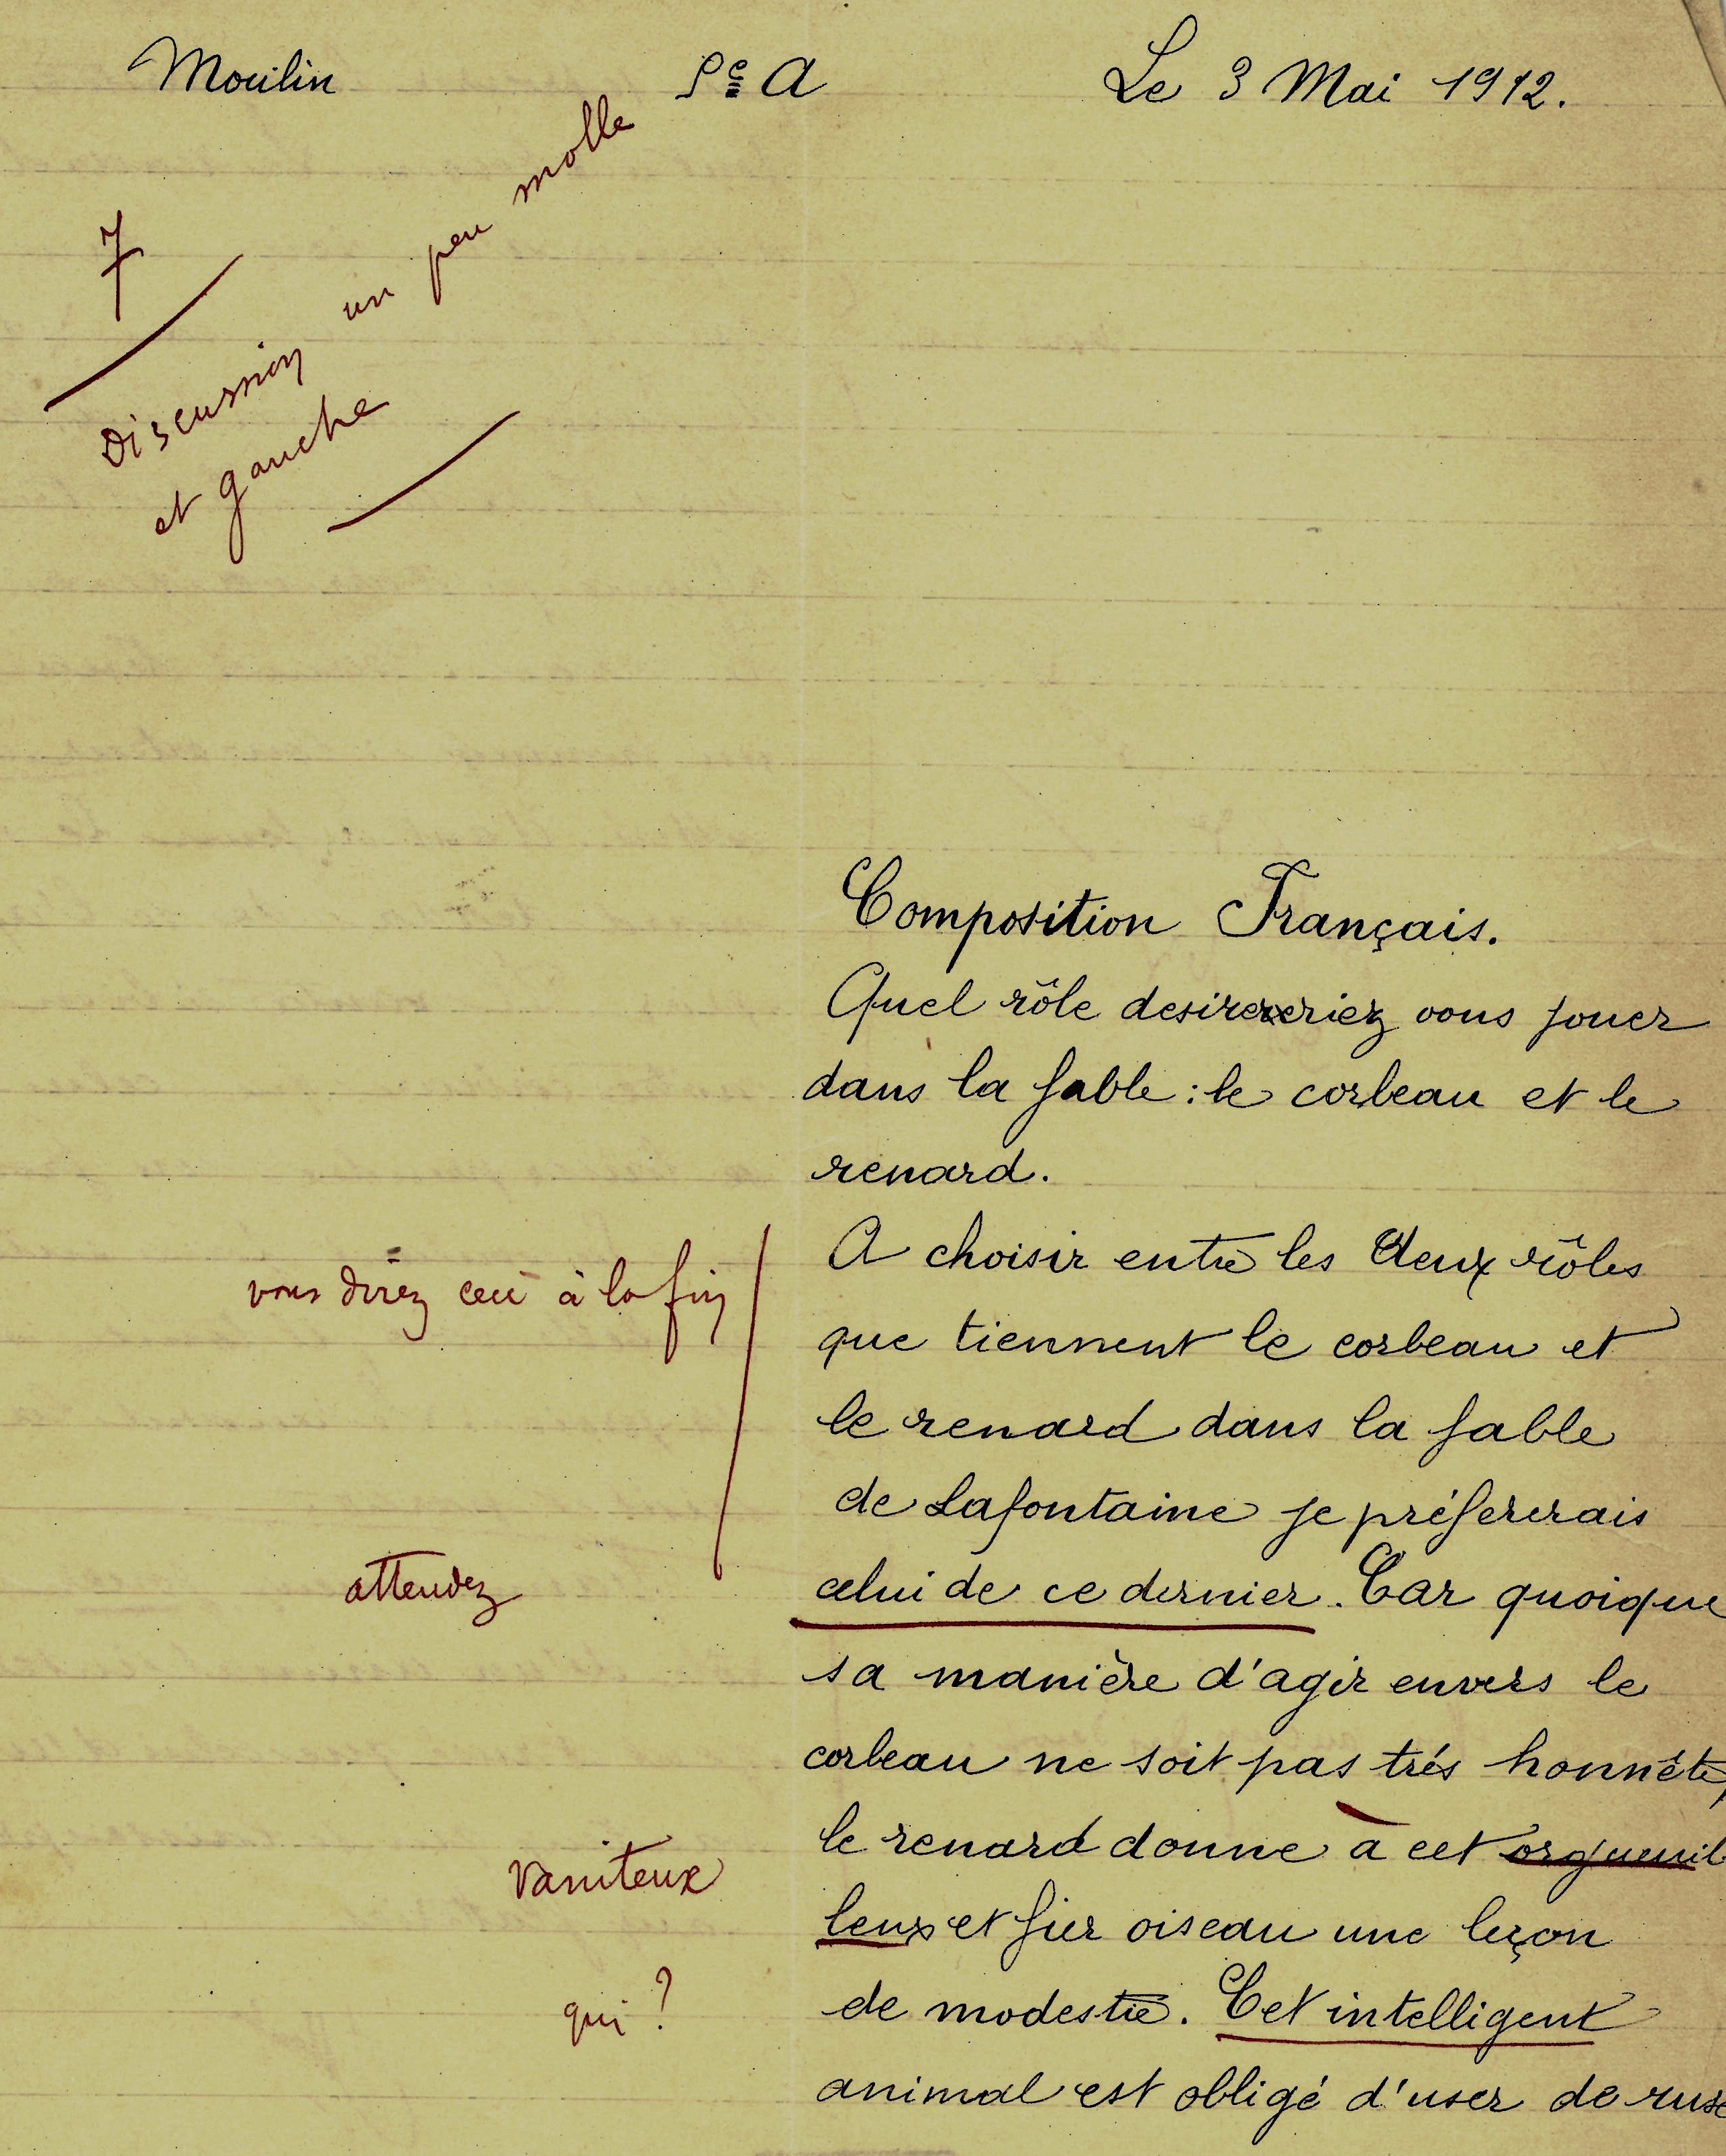 Moulin 5e A Le 3 Mai 1912.
7
Discussion un peu molle
et gauche
Composition Français.
Quel rôle desireriez vous jouer
dans la fable : le corbeau et le
renard.
A choisir entre les deux rôles
vous direz ceci à la fin
que tiennent le corbeau et
le renard dans la fable
de Lafontaine je préfererais
attendez
celui de ce dernier. Car quoique
sa manière d'agir envers le
corbeau ne soit pas trés honnête,
le renard donne a cet orgueuil
vaniteux
leux et fier oiseau une leçon
de modestie. Cet intelligent
qui ?
animal est obligé d'user de ruse